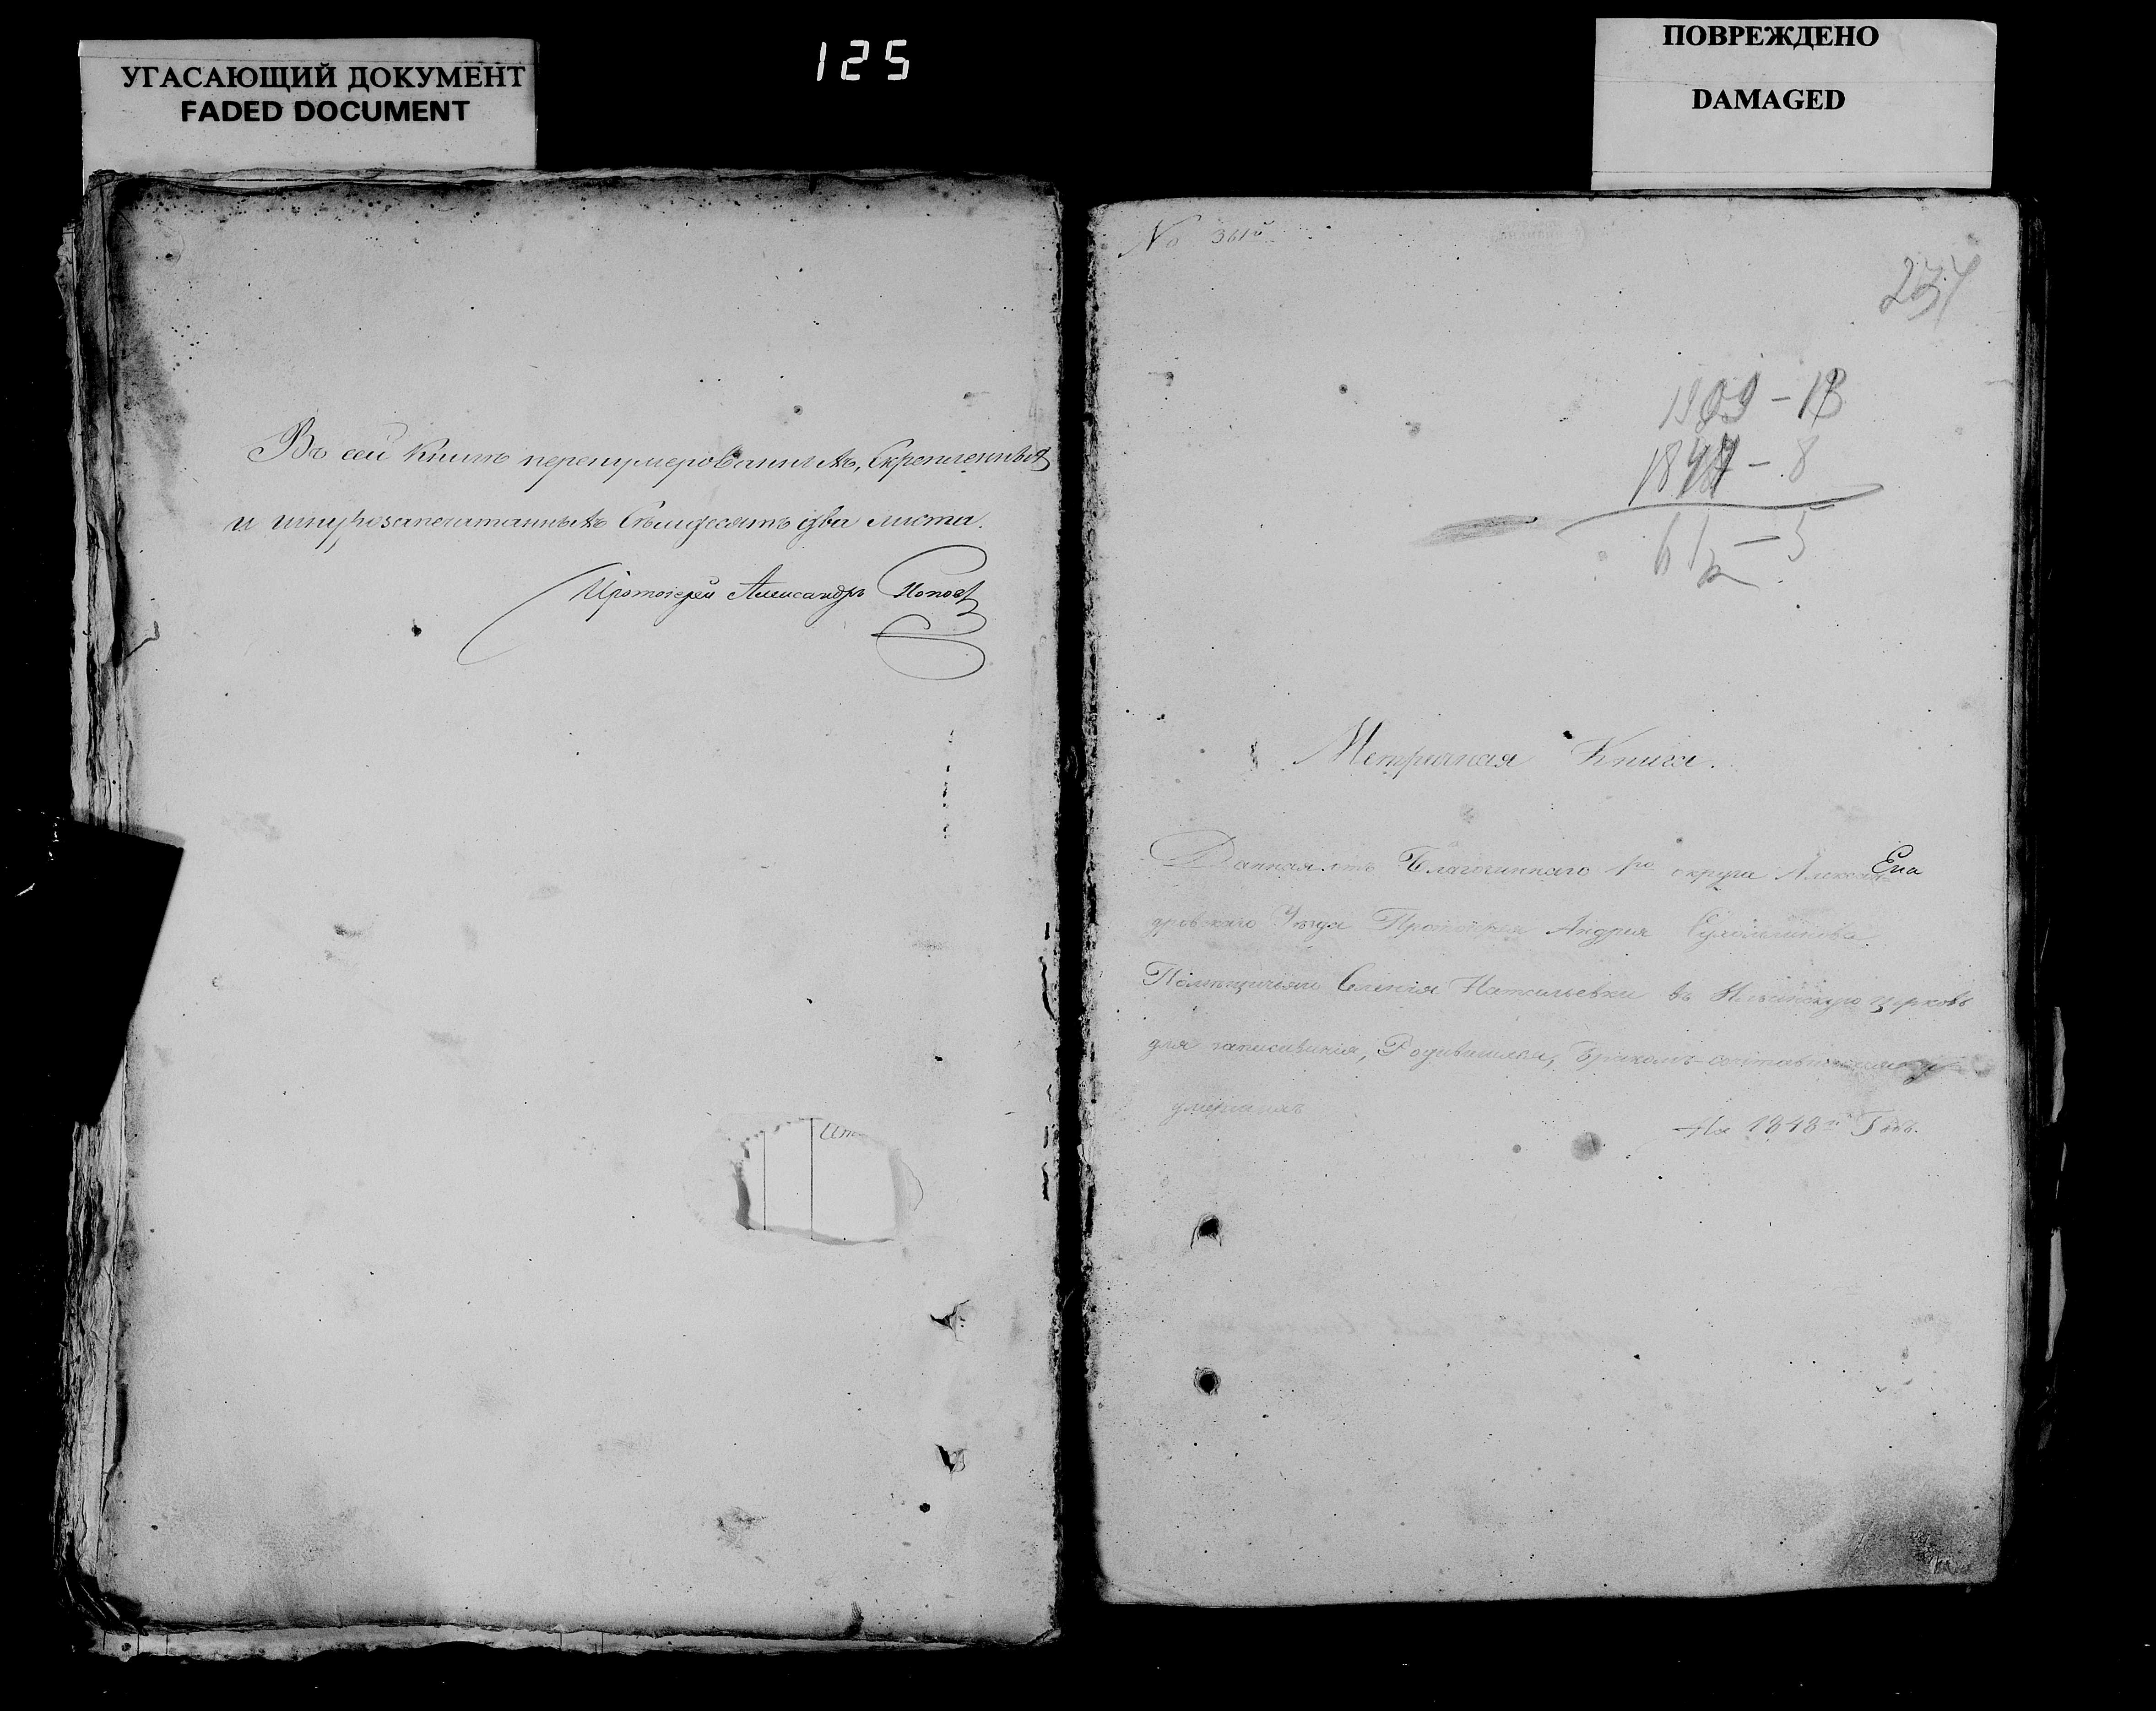 УГАСАЮЩИЙ ДОКУМЕНТ
FADED DOCUMENT
125
ПОВРЕЖДЕНО
DAMAGED
Въ сей книгѣ перенумерованныхъ, скрепленныхъ
и шнурозапечатанныхъ семьдесятъ два листа.
Протоіерей Александръ Попов
No 361й
234
1909 - 13
1848 - 8
61 - 5
Метричная Книга.
Данная отъ Благочиннаго 1го округа Алексан
Ека
дровскаго Уезда Протоіерея Андрея
Помѣщичьяго Селенія Натальевки въ церковь
для записыванія, Родившихся, Бракомъ-сочетавшихся и
умершихъ
На 1848й Годъ.